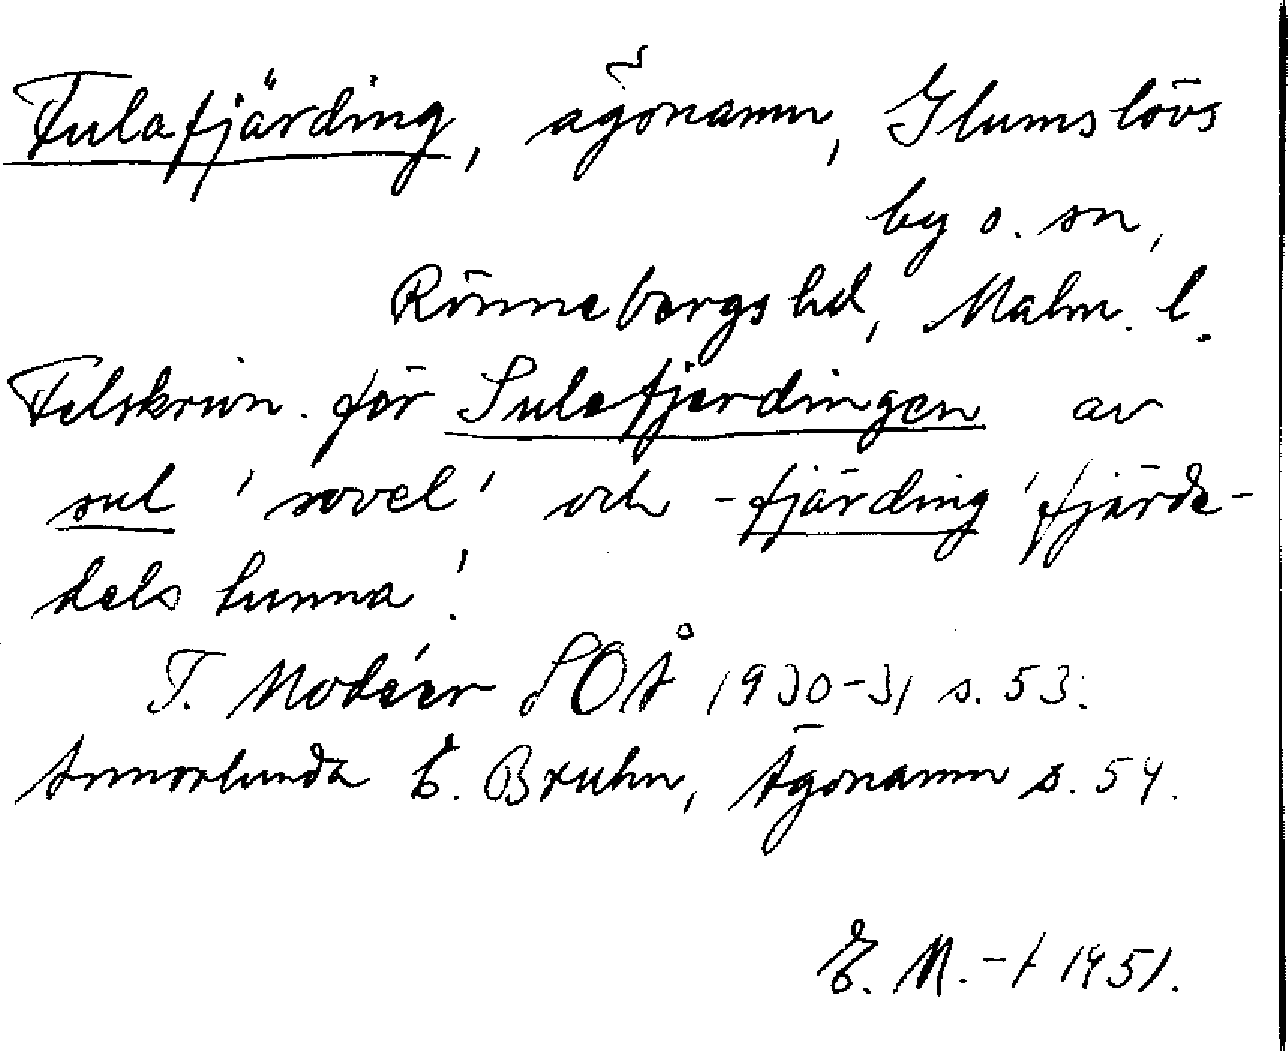 Fulafjärding, ägonamn, Glumslövs
by o. sn,
Rönnebergs hd, Malm. l.
Felskrivn. för Sulefjerdingen av
sul 'sovel' och -fjärding 'fjärde-
dels tunna'.
I. Modéer SOÅ 1930-31 s. 53.
Annorlunda E. Bruhn, Ägonamn s. 54.
E. M.-t 1951.